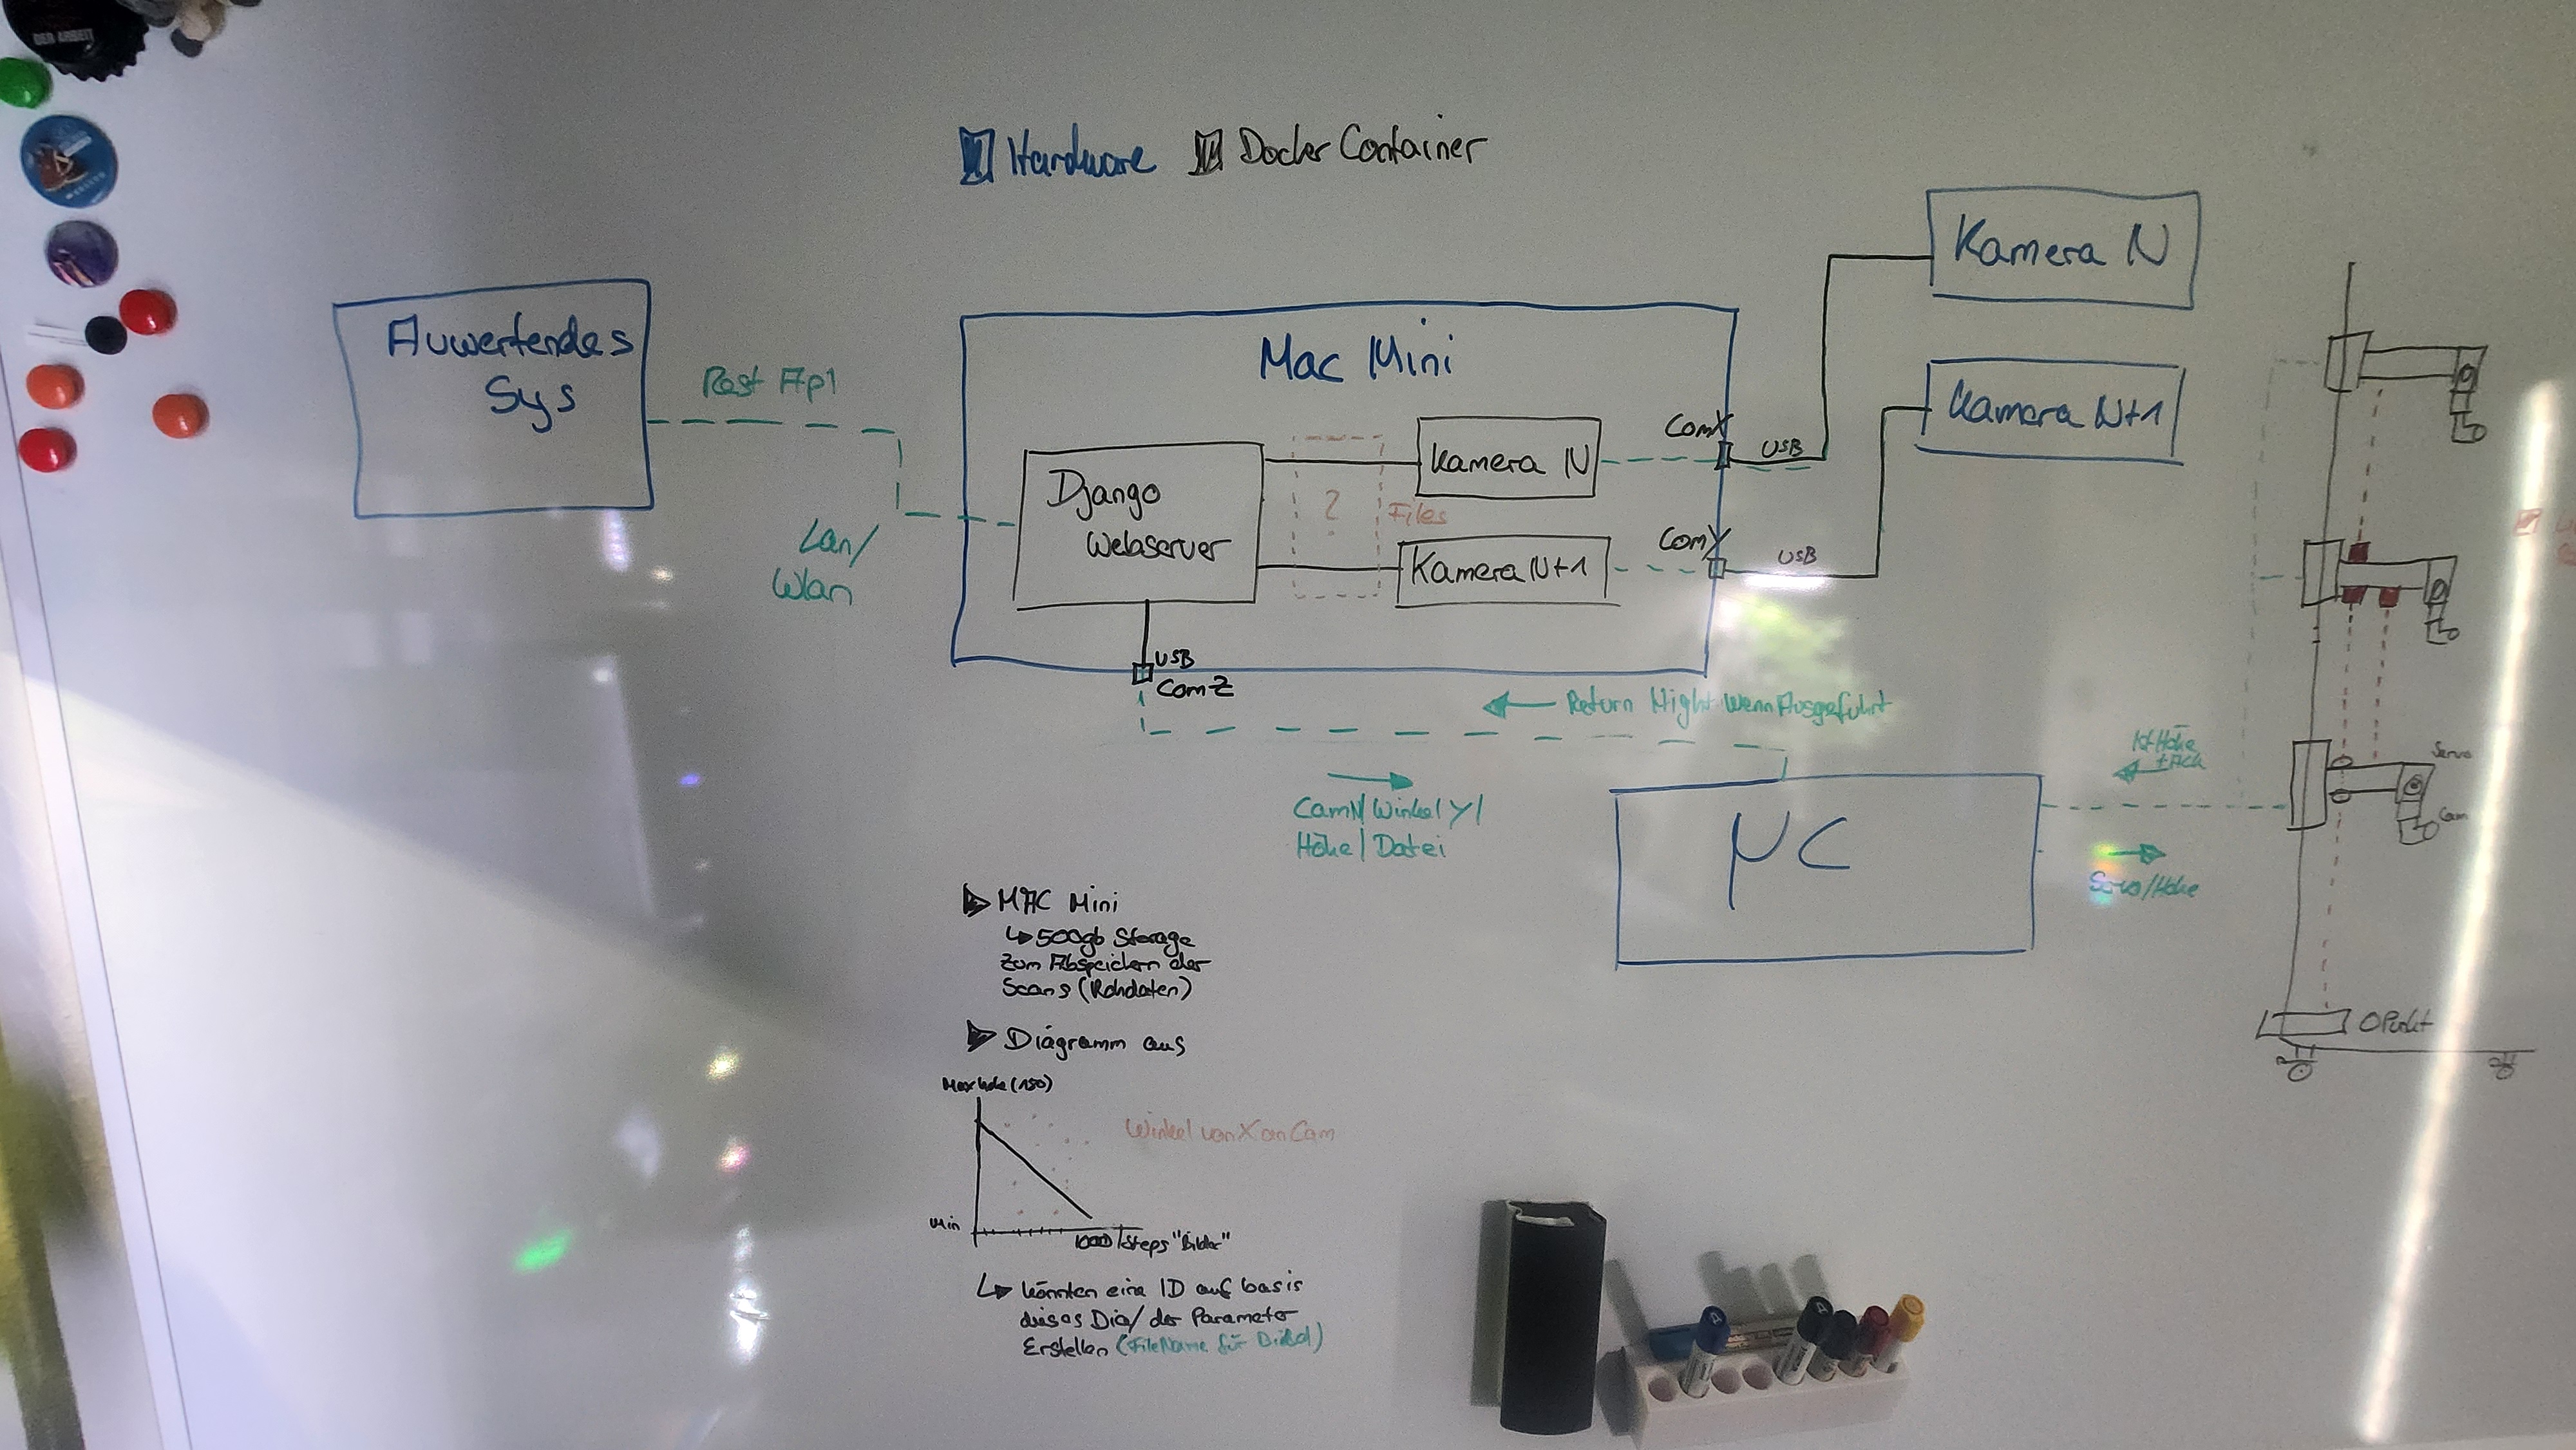 DER ARBEIT
Hardware
Docker Container
Kamera N
Auwertendes
Sys
Rest Api
Lan/
Wlan
Mac Mini
Django
Webserver
?
Files
Kamera N
Kamera N+1
ComX
USB
ComY
USB
Kamera N+1
USB
ComZ
Return Hight Wenn Ausgeführt
CamN/Winkel Y/
Höhe/Datei
µC
Ist Höhe
+Ack
Servo/Höhe
Servo
Cam
0Punkt
MAC Mini
500gb Storage
Zum Abspeichern der
Scans (Rohdaten)
Diagramm aus
Max höhe (150)
Winkel von X an Cam
Min
1000/Steps "Bilder"
könnten eine ID auf basis
dieses Dia/ der Parameter
Erstellen (FileName für